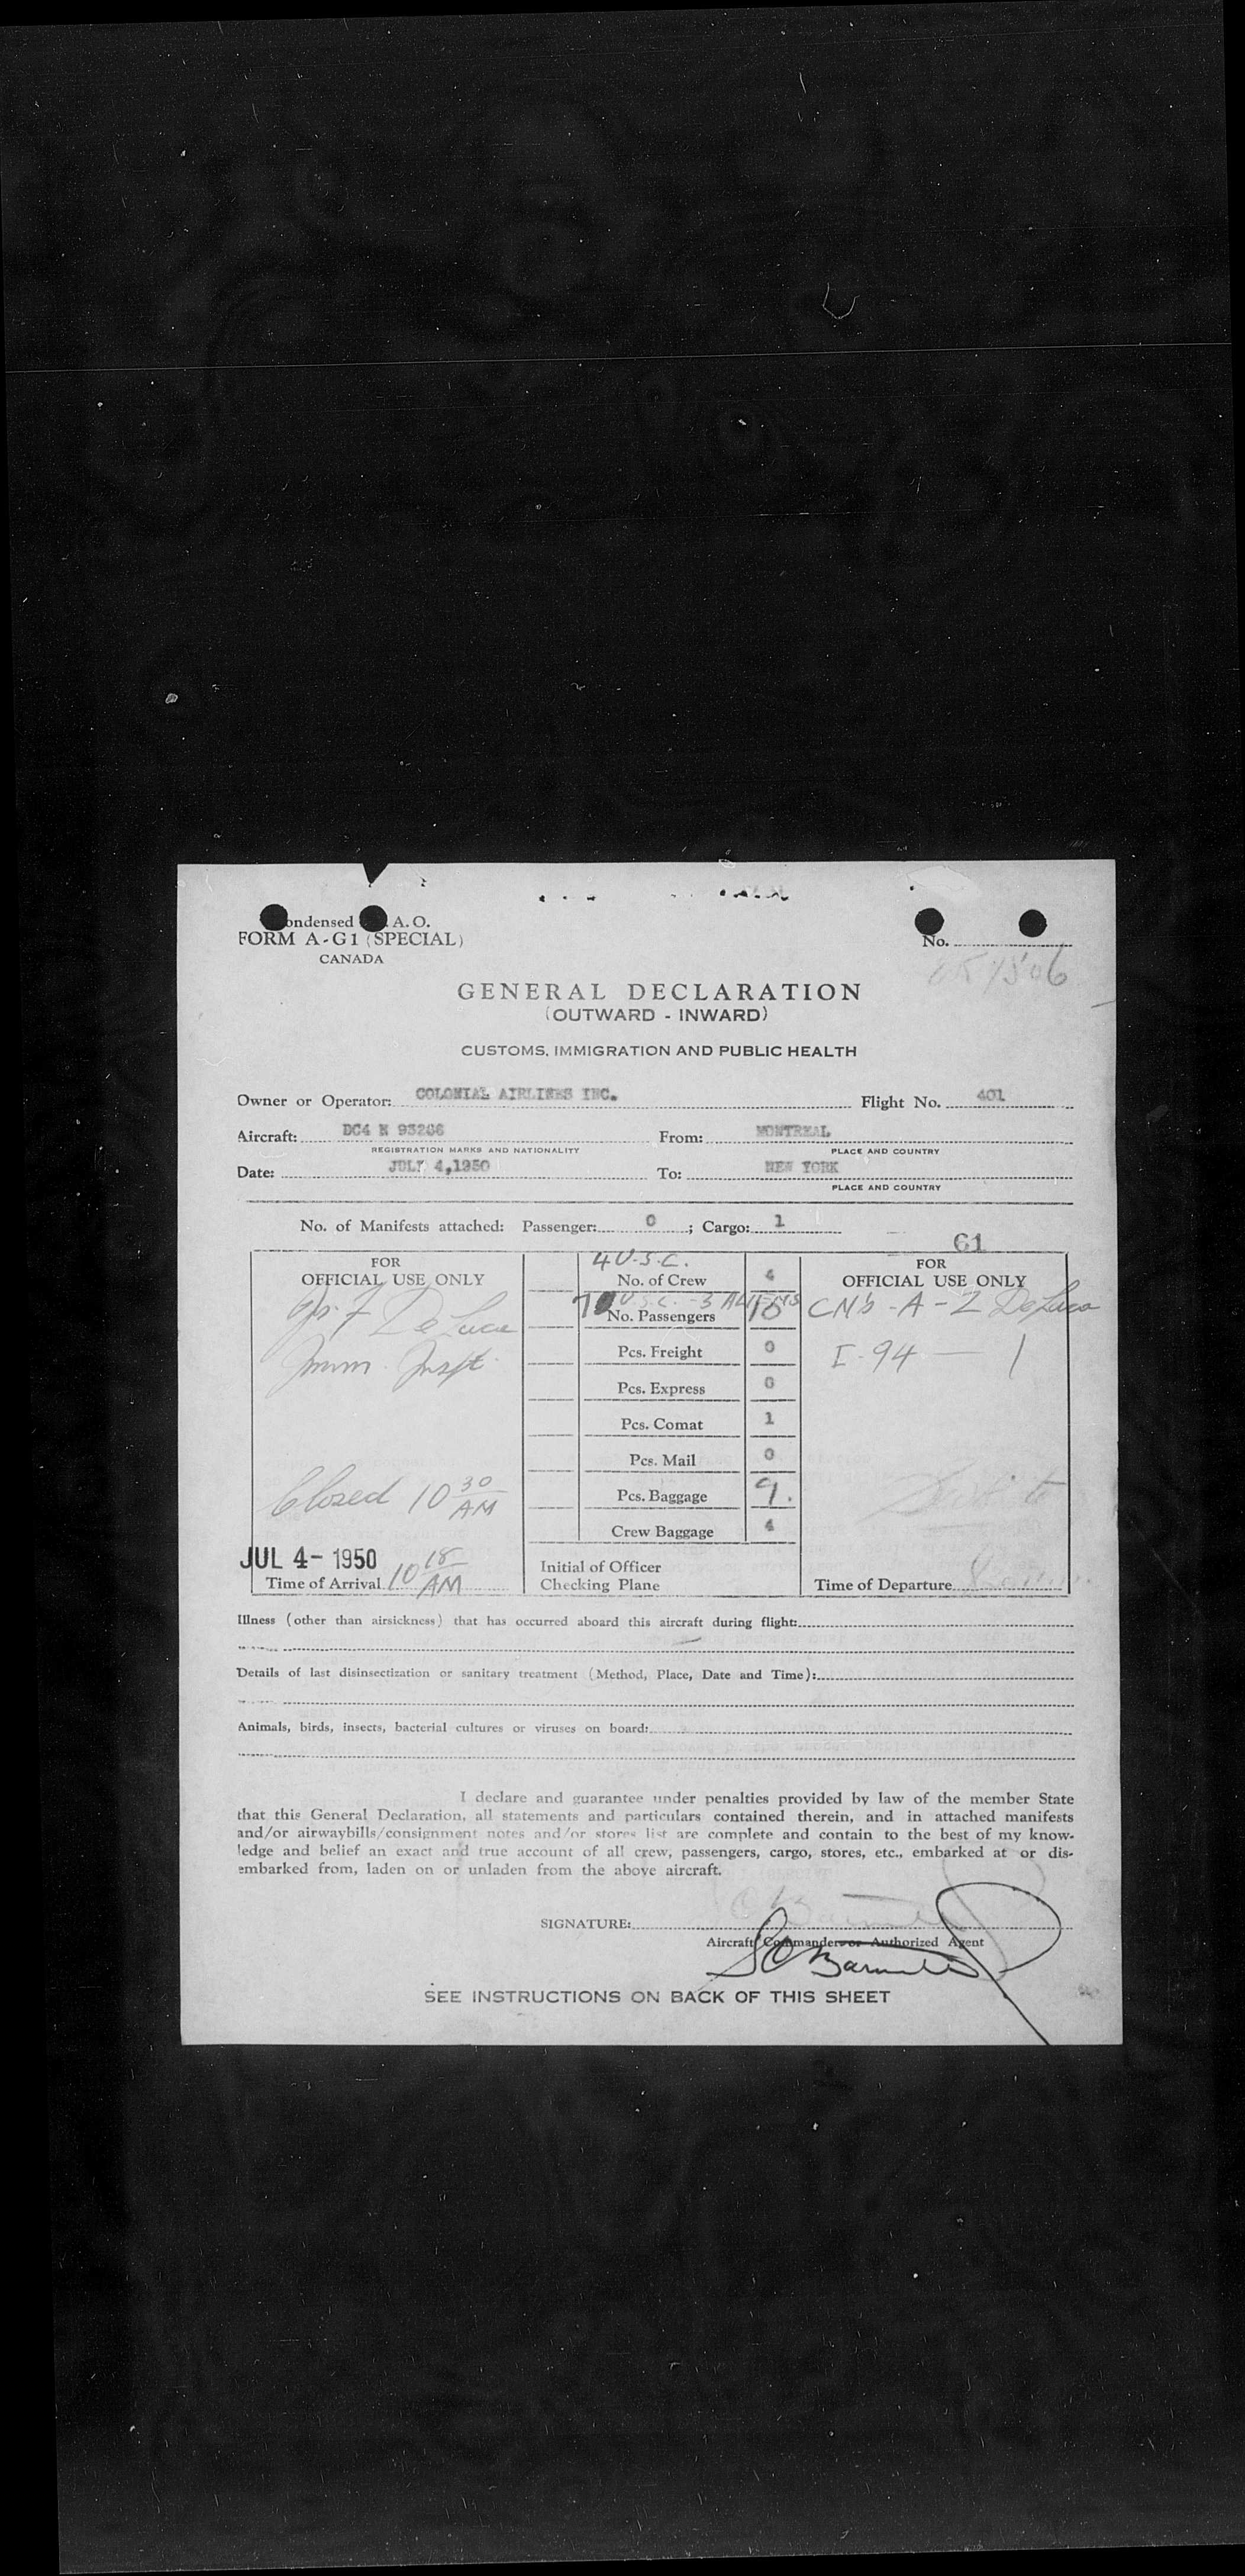 ondensed A. O.
FORM A-G1 (SPECIAL)
CANADA
No.
GENERAL DECLARATION
(OUTWARD - INWARD)
CUSTOMS, IMMIGRATION AND PUBLIC HEALTH
Owner or Operator: COLONIAL AIRLINES INC. Flight No. 401
Aircraft: DC4 N 93266 From: MONTREAL
REGISTRATION MARKS AND NATIONALITY PLACE AND COUNTRY
Date: JULY 4,1950 To: NEW YORK
PLACE AND COUNTRY
No. of Manifests attached: Passenger: 0 ; Cargo: 1
61
FOR
OFFICIAL USE ONLY
De Luca
Imm. Inspt.
Closed 10 30 AM
JUL 4- 1950
Time of Arrival 10 18 AM
4 U.S.C.
No. of Crew 4
7 U.S.C. - 3 ALIENS
No. Passengers 10
Pcs. Freight 0
Pcs. Express 0
Pcs. Comat 1
Pcs. Mail 0
Pcs. Baggage 9.
Crew Baggage 4
Initial of Officer
Checking Plane
FOR
OFFICIAL USE ONLY
CN's - A - 2 DeLuca
I-94 — 1
Time of Departure
Illness (other than airsickness) that has occurred aboard this aircraft during flight:
Details of last disinsectization or sanitary treatment (Method, Place, Date and Time):
Animals, birds, insects, bacterial cultures or viruses on board:
I declare and guarantee under penalties provided by law of the member State
that this General Declaration, all statements and particulars contained therein, and in attached manifests
and/or airwaybills/consignment notes and/or stores list are complete and contain to the best of my know-
ledge and belief an exact and true account of all crew, passengers, cargo, stores, etc., embarked at or dis-
embarked from, laden on or unladen from the above aircraft.
SIGNATURE:
Aircraft Commander or Authorized Agent
SEE INSTRUCTIONS ON BACK OF THIS SHEET